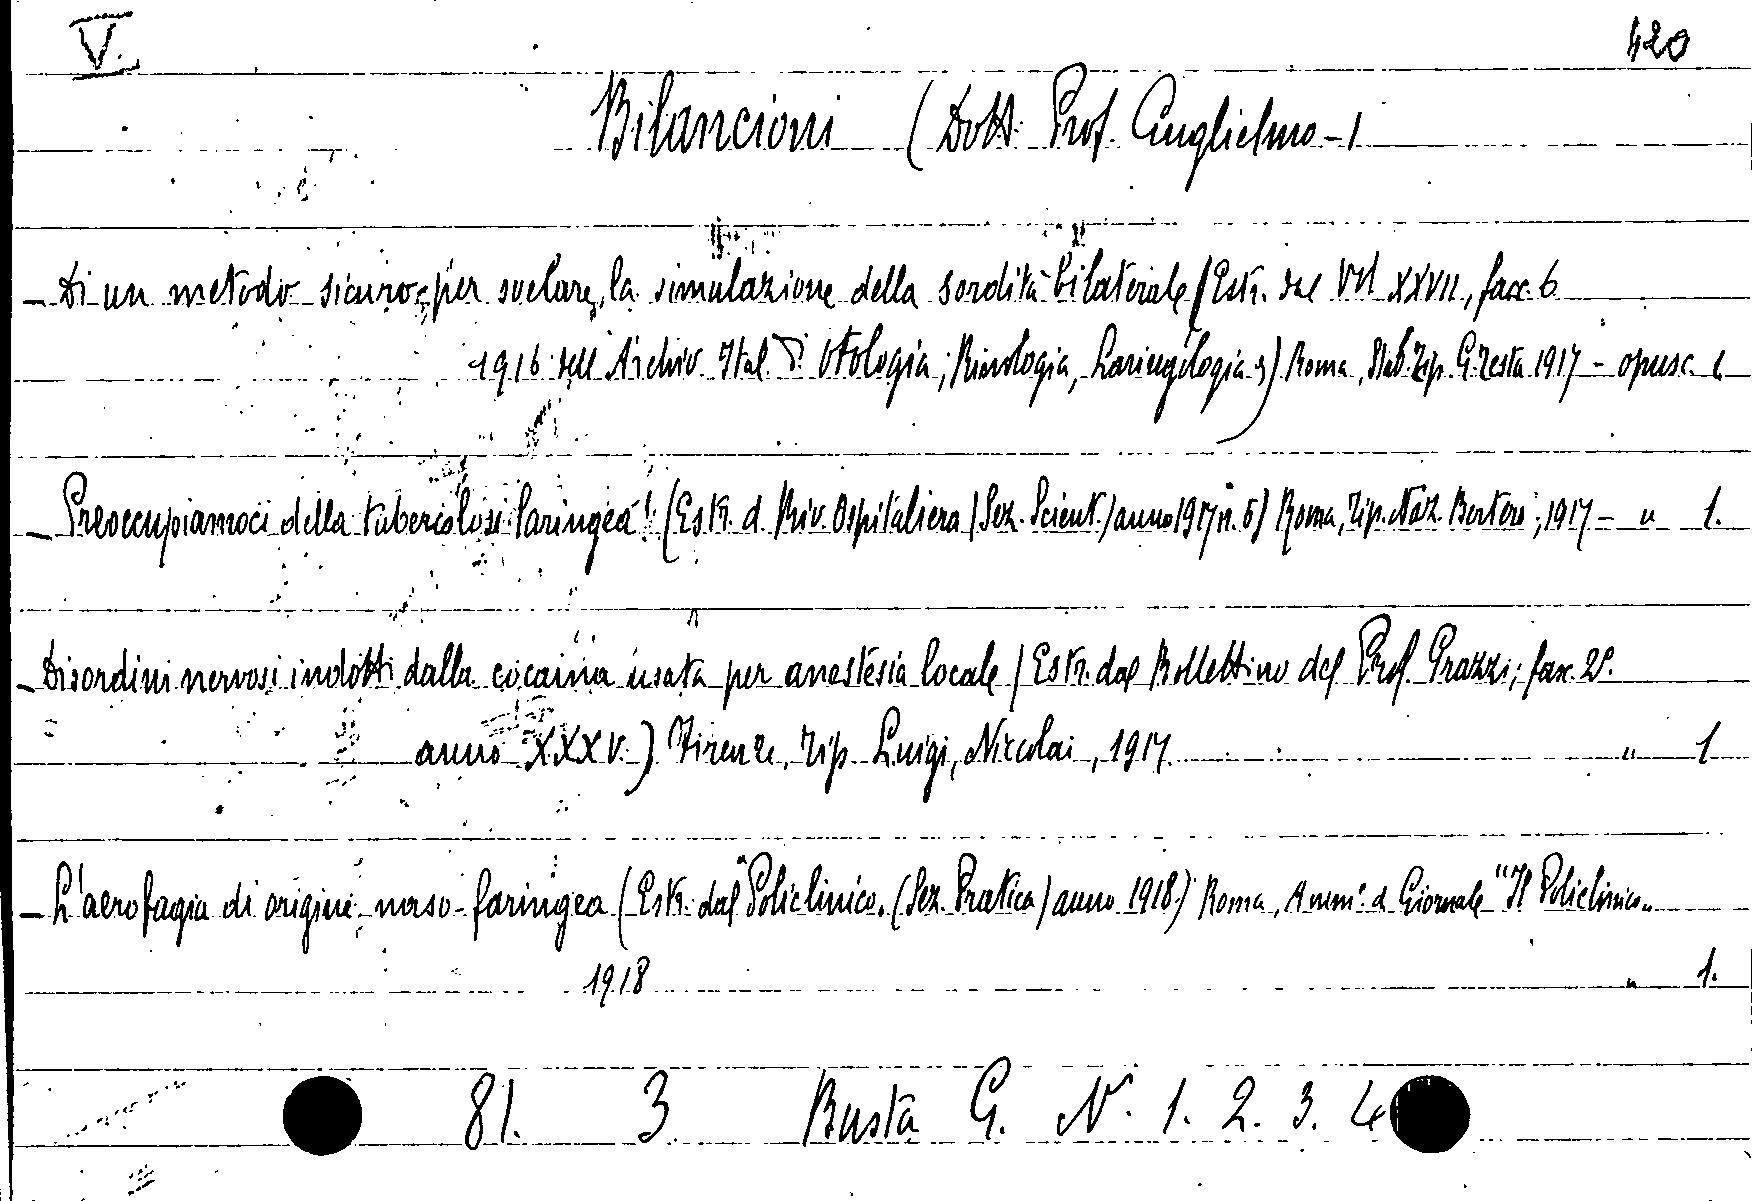 V. 420
Bilancioni (Dott. Prof. Guglielmo-)
- Di un metodo sicuro per svelare la simulazione della sordità bilaterale (Estr. dal Vol XXVII, fasc. 6
1916 dell' Archiv. Ital. di Otologia, Rinologia, Laringologia) Roma, Stab. Tip. G. Testa 1917 - opusc. 1
- Preoccupiamoci della tubercolosi laringea! (Estr. d. Riv. Ospitaliera (Sez. Scient.) anno 1917 n. 5) Roma, Tip. Naz. Bertero, 1917 - " 1.
- Disordini nervosi indotti dalla cocaina usata per anestesia locale (Estr. dal Bollettino del Prof. Grazzi, fasc. 2º.
anno XXXV.) Firenze, Tip. Luigi, Niccolai, 1917. " 1
- L'aerofagia di origine naso-faringea (Estr. dal "Policlinico. (Sez. Pratica) anno 1918) Roma, Amm.e d. Giornale "Il Policlinico"
1918 " 1.
81. 3 Busta G. N. 1. 2. 3. 4